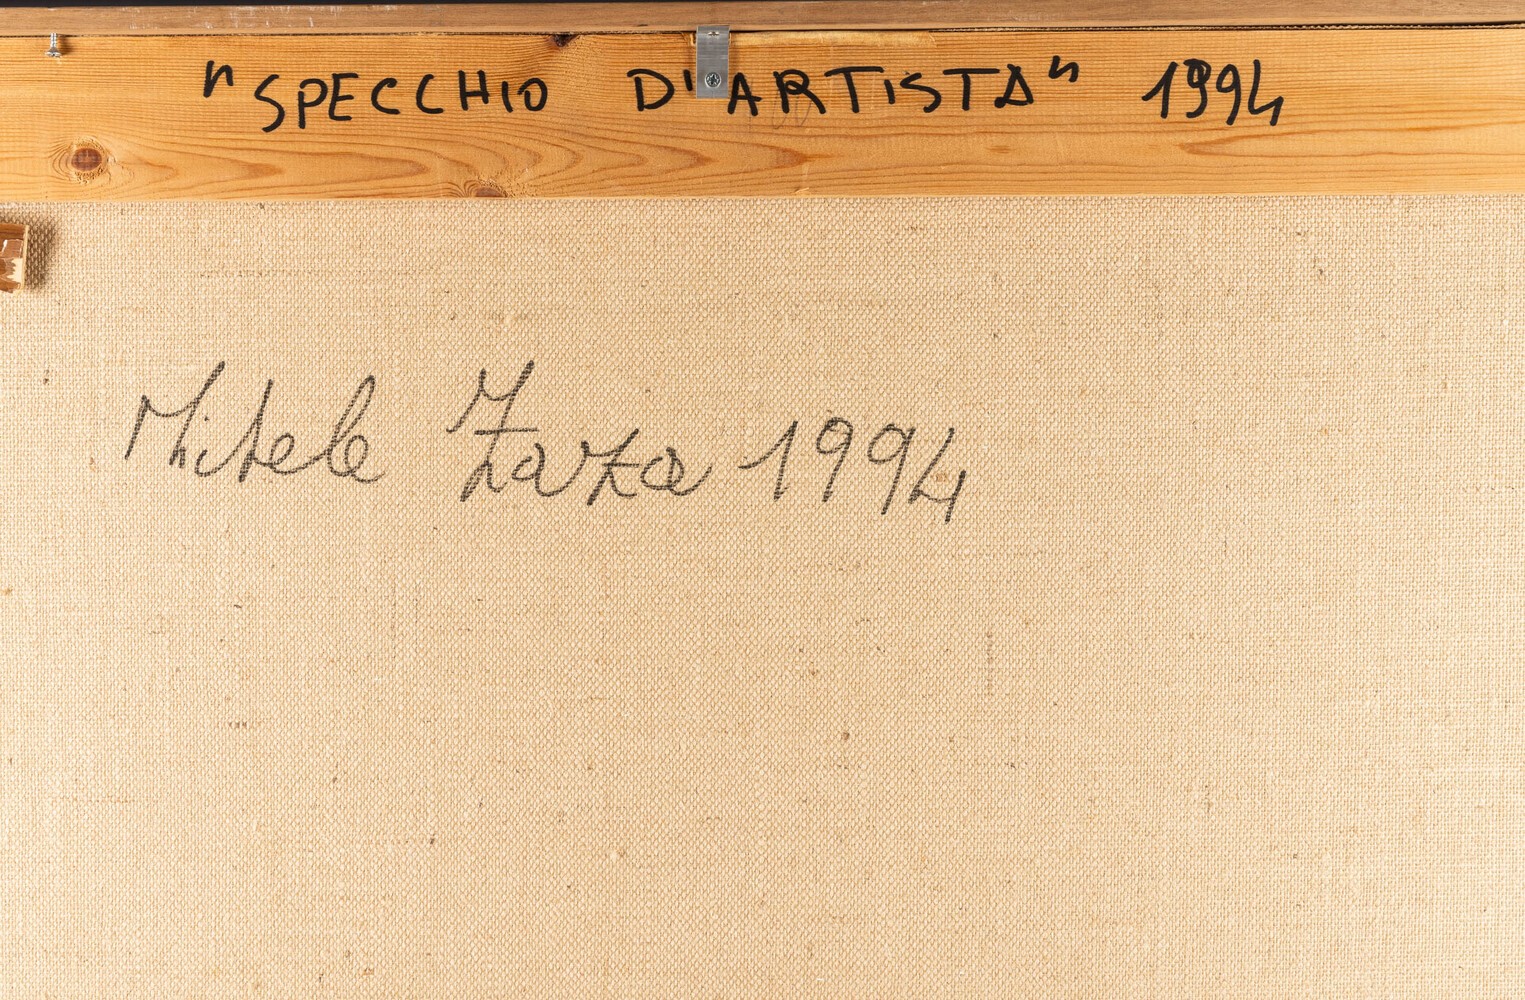 "SPECCHIO D'ARTISTA" 1994
Michele Zaza 1994